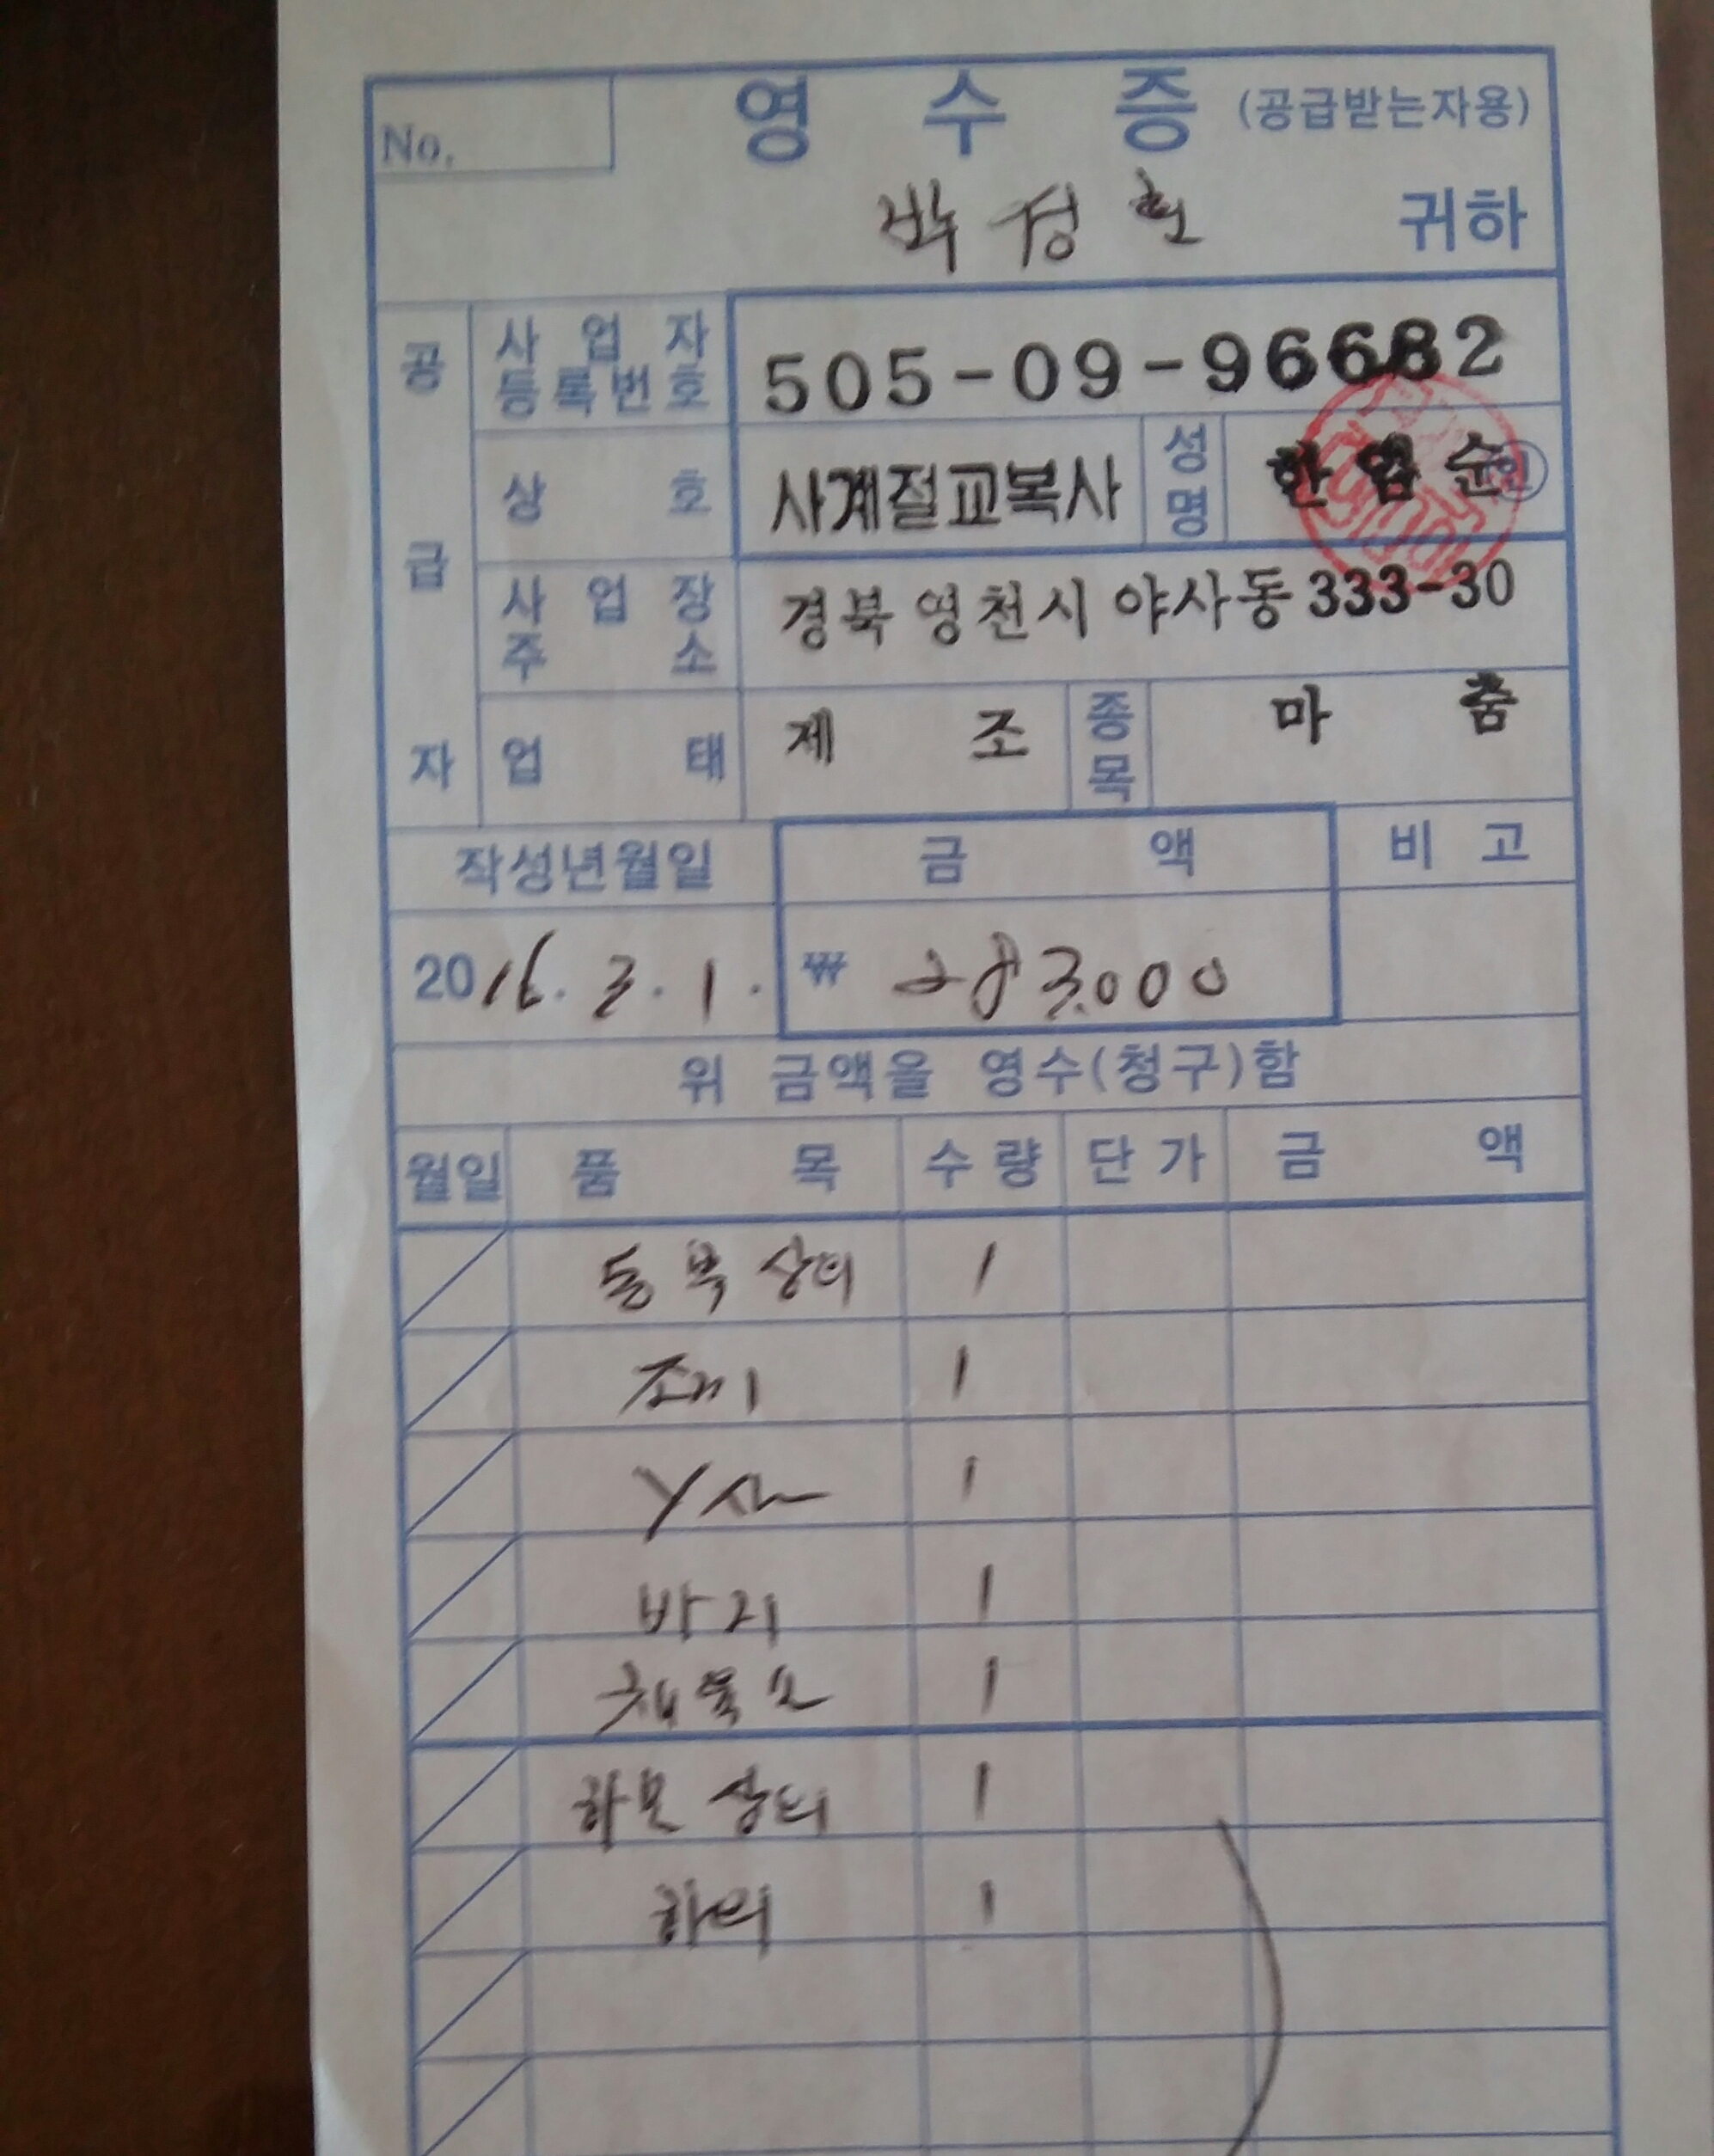 No. 영 수 증 (공급받는자용)
박정현 귀하
공급자
사업자등록번호 505-09-96682
상호 사계절교복사 성명 한엽순 인
사업장주소 경북 영천시 야사동 333-30
업태 제조 종목 마춤
작성년월일 금액 비고
2016. 3. 1. ₩ 283.000
위 금액을 영수(청구)함
월일 품목 수량 단가 금액
동복 상의 1
조끼 1
Y샤 1
바지 1
체육복 1
하복 상의 1
하의 1